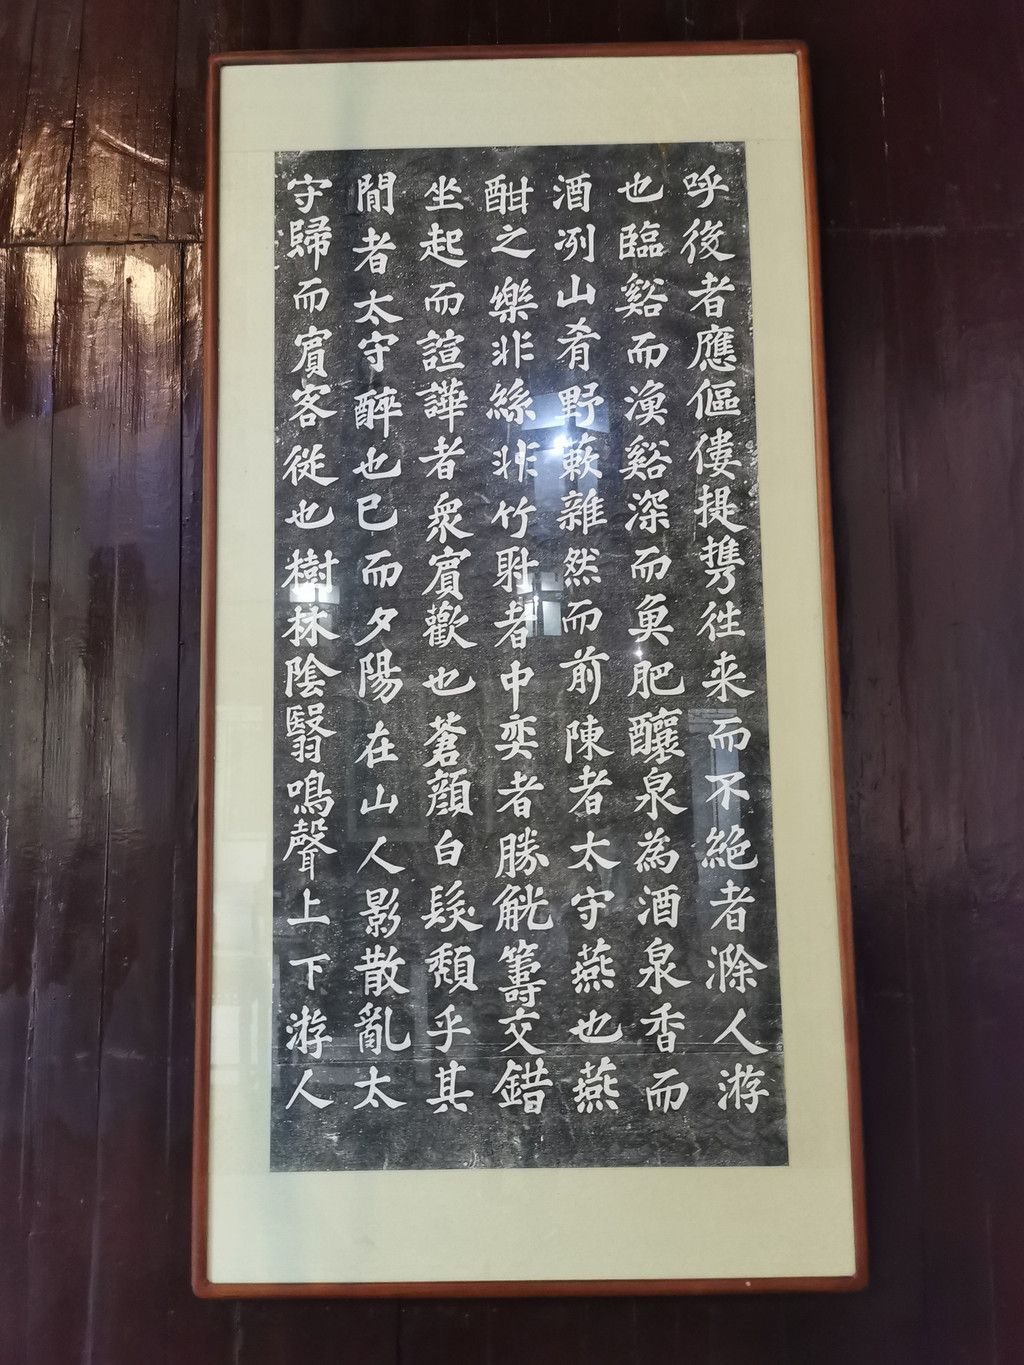 呼後者應傴僂提攜往来而不絕者滁人游
也臨谿而漁谿深而魚肥釀泉為酒泉香而
酒冽山肴野蔌雜然而前陳者太守燕也燕
酣之樂非絲非竹射者中奕者勝觥籌交錯
坐起而諠譁者衆賓歡也蒼顔白髮頹乎其
間者太守醉也已而夕陽在山人影散亂太
守歸而賓客從也樹林陰翳鳴聲上下游人